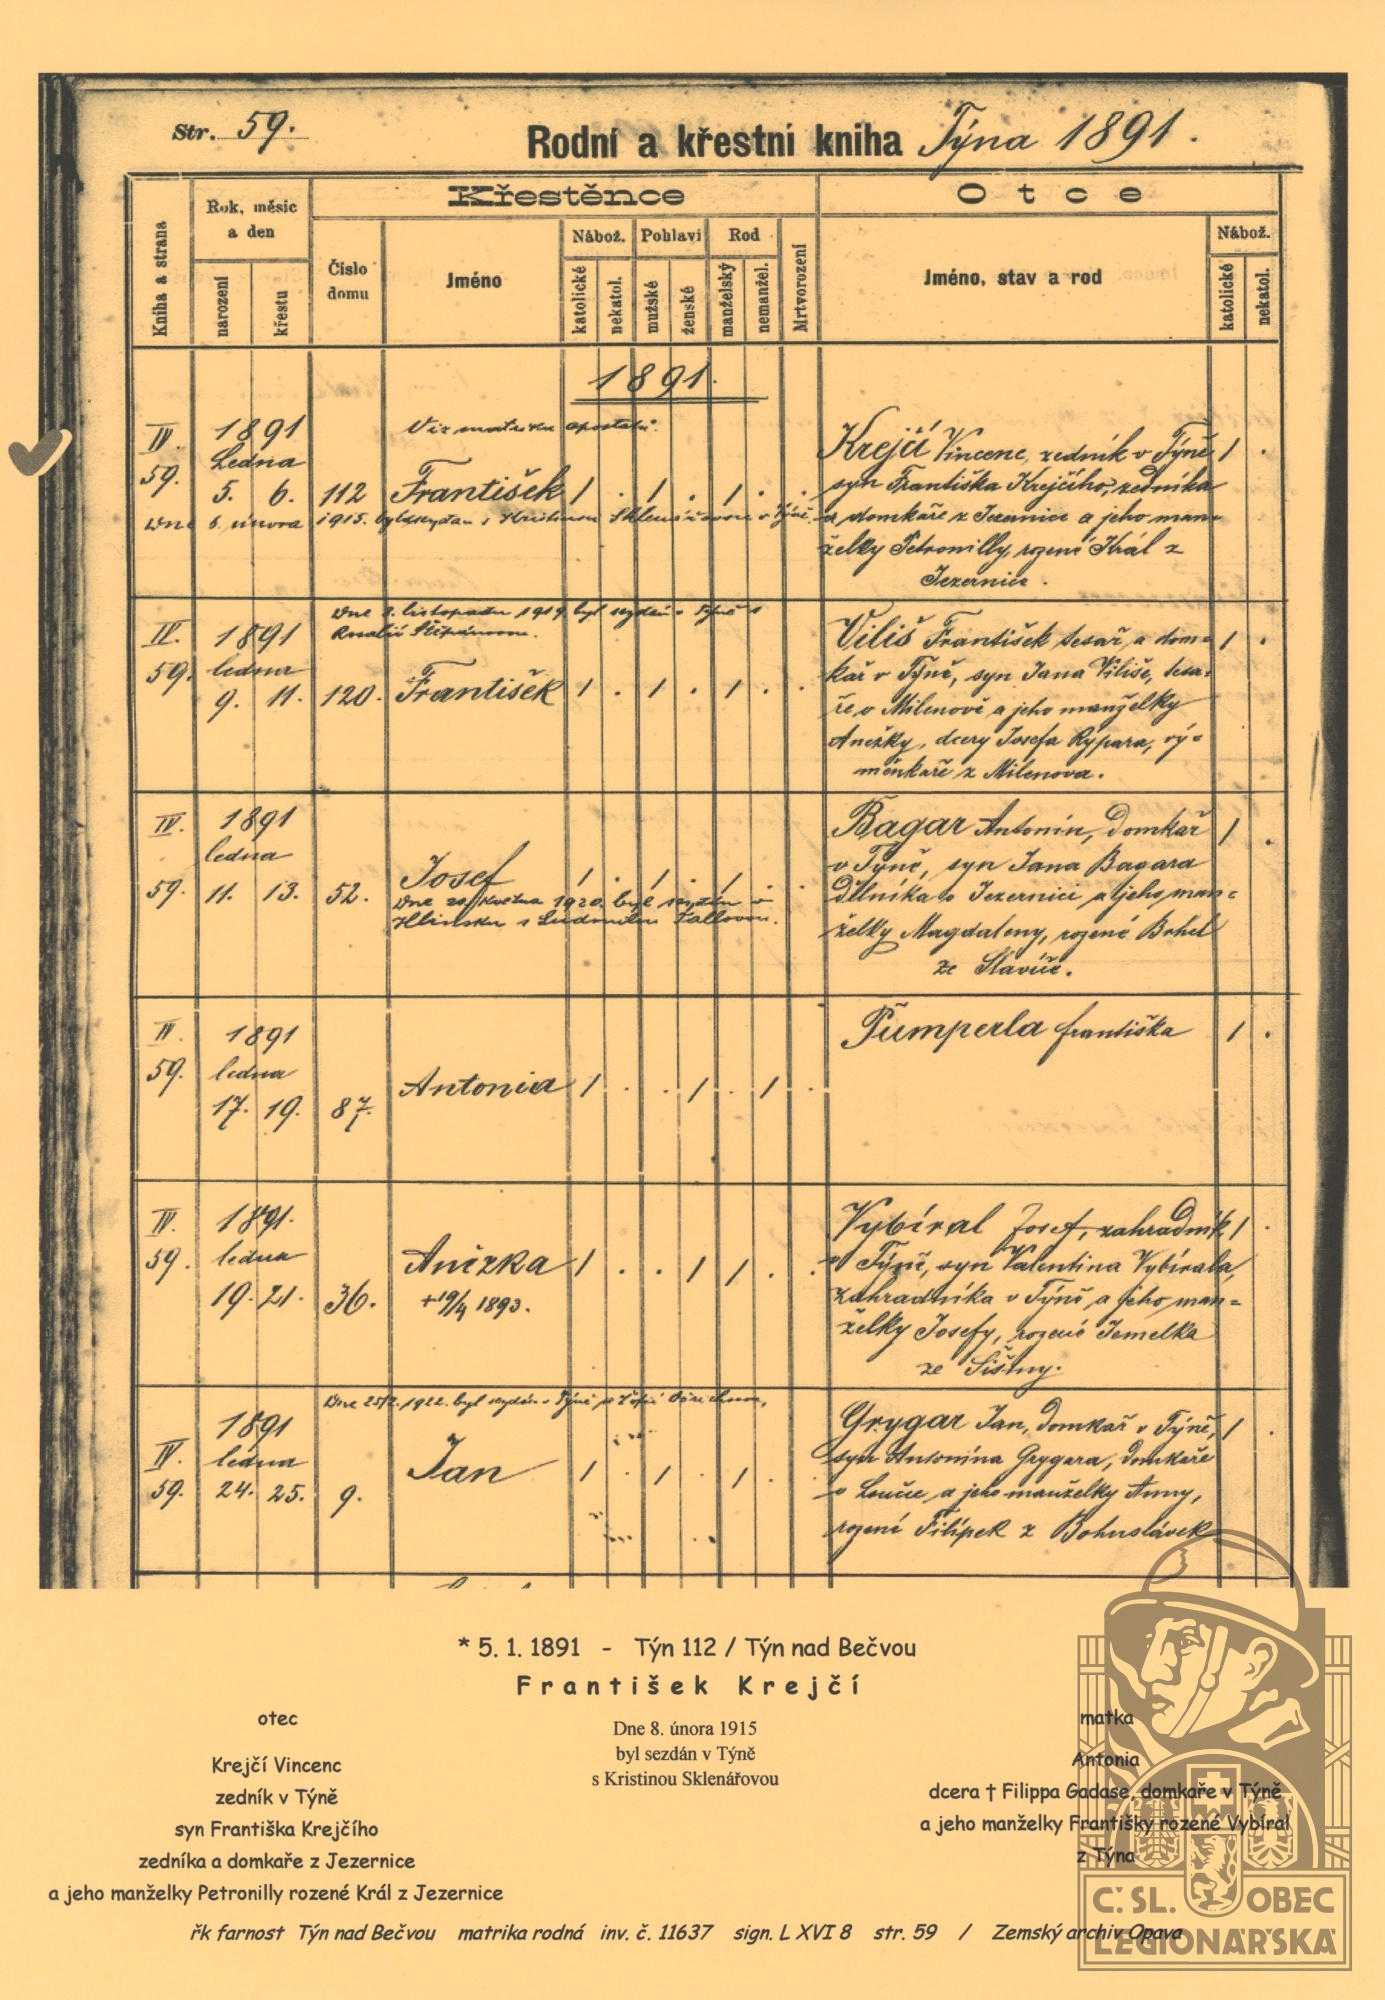 Str. 59.
Rodní a křestní kniha Týna 1891.
Kniha a strana
Rok, měsíc
a den
narození
křestu
Křestěnce
Číslo
domu
Jméno
Nábož.
katolické
nekatol.
Pohlaví
mužské
ženské
Rod
manželský
nemanžel.
Mrtvorození
Otce
Jméno, stav a rod
Nábož.
katolické
nekatol.
1891.
IV. 1891 Viz matrika
59. Ledna
5. 6. 112 František 1 . 1 . 1 . .
Dne února 1915. byl sezdán s Sklenářovou v Týně
Krejčí Vincenc, zedník v Týně 1 .
syn Františka Krejčího, zedníka
a domkaře z Jezernice a jeho man=
želky Petronilly, rozené Král z
Jezernice.
Dne listopadu 1919. byl sezdán v Týně s
Rosalií Štěpánovou.
IV. 1891
59. ledna
9. 11. 120. František 1 . 1 . 1 . .
Viliš František tesař a dom= 1 .
kář v Týně, syn Jana Viliše, tesa=
ře v Milenově a jeho manželky
Anežky, dcery Josefa Rypara, vý=
měnkaře z Milenova.
IV. 1891
ledna
59. 11. 13. 52. Josef 1 . 1 . 1 . .
Dne 20. května 1920. byl sezdán v
Hlinsku s Ludmilou Fallovou.
Bagar Antonín, domkář 1 .
v Týně, syn Jana Bagara
dělníka v Jezernici a jeho man=
želky Magdaleny, rozené Bohel
ze Slavíče.
IV. 1891
59. ledna
17. 19. 87. Antonia 1 . . 1 . 1 .
Pumperla františka 1 .
IV. 1891.
59. ledna
19. 21. 36. Anežka 1 . . 1 1 . .
+ 19/4 1893.
Vybíral Josef, zahradník 1 .
v Týně, syn Valentina Vybírala,
zahradníka v Týně a jeho man=
želky Josefy, rozené Jemelka
ze Sišmy.
Dne 25/2. 1922. byl sezdán v Týně se Žofií
1891
IV. ledna
59. 24. 25. 9. Jan 1 . 1 . 1 .
Grygar Jan, domkař v Týně, 1 .
syn Antonína Grygara, domkáře
v Loučce a jeho manželky Anny,
rozené Filípek z Bohuslávek
* 5. 1. 1891 - Týn 112 / Týn nad Bečvou
František Krejčí
otec
Krejčí Vincenc
zedník v Týně
syn Františka Krejčího
zedníka a domkaře z Jezernice
a jeho manželky Petronilly rozené Král z Jezernice
Dne 8. února 1915
byl sezdán v Týně
s Kristinou Sklenářovou
matka
Antonia
dcera † Filippa Gadase, domkaře v Týně
a jeho manželky Františky rozené Vybíral
z Týna
řk farnost Týn nad Bečvou matrika rodná inv. č. 11637 sign. L XVI 8 str. 59 / Zemský archiv Opava
Č.SL. OBEC
LEGIONÁŘSKÁ